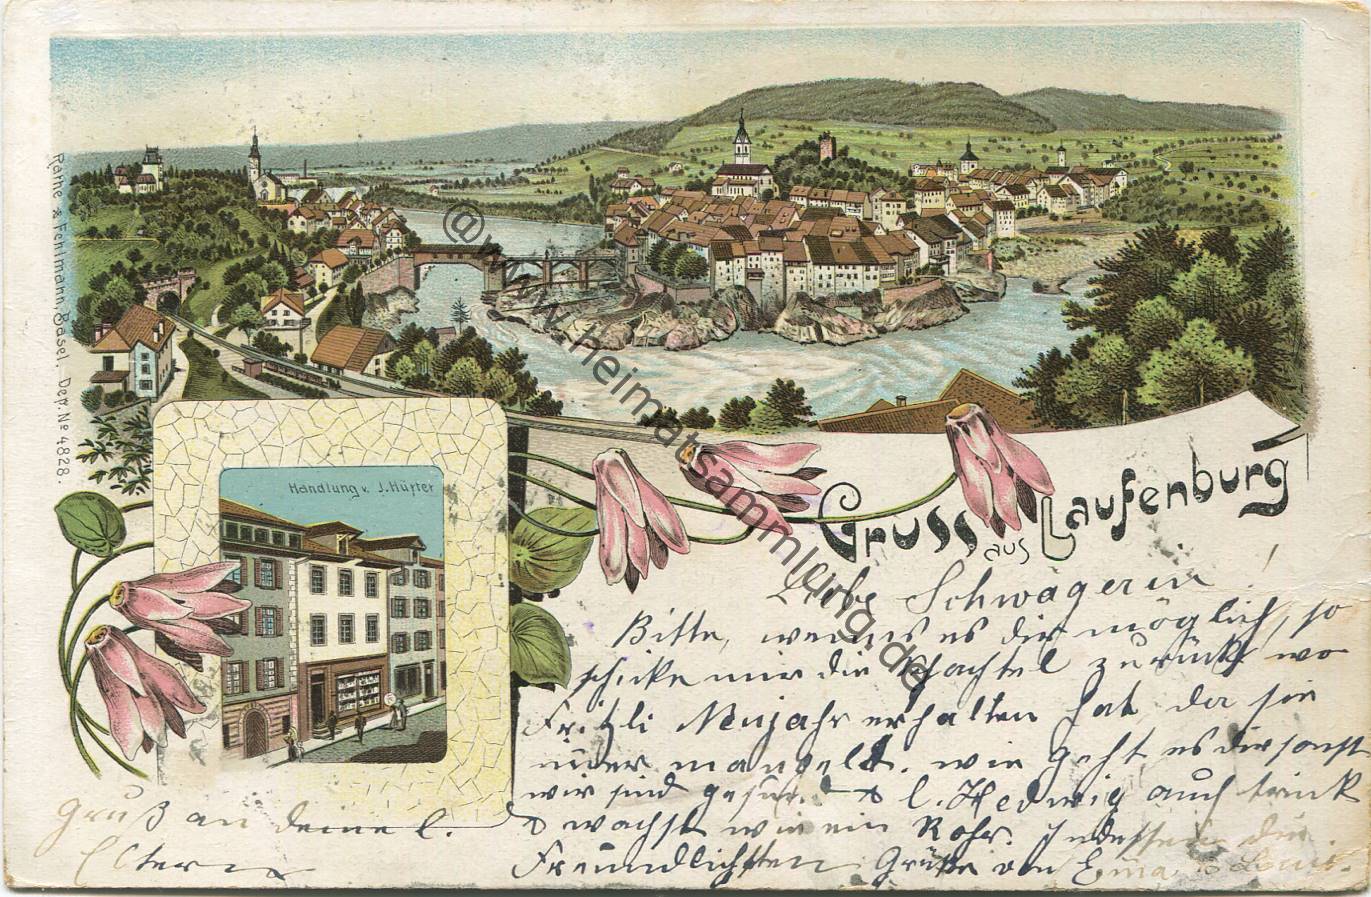 Rathe & Fehlmann, Basel. Dep. Nº 4828.
@www.heimatsammlung.de
Handlung v. J. Hürter
Gruss aus Laufenburg
Liebe Schwägerin!
Bitte, wenns es dir möglich, so
schicke mir die Schachtel zurück wo
Fritzli Neujahr erhalten hat, da sie
mangelt. wie geht es dir sonst
wir sind gesund & l. Hedwig auch trink
& wachst wie ein Rohr. Indessen die
Freundlichsten Grüße von Ema & Louis.
Gruß an deine l.
Eltern